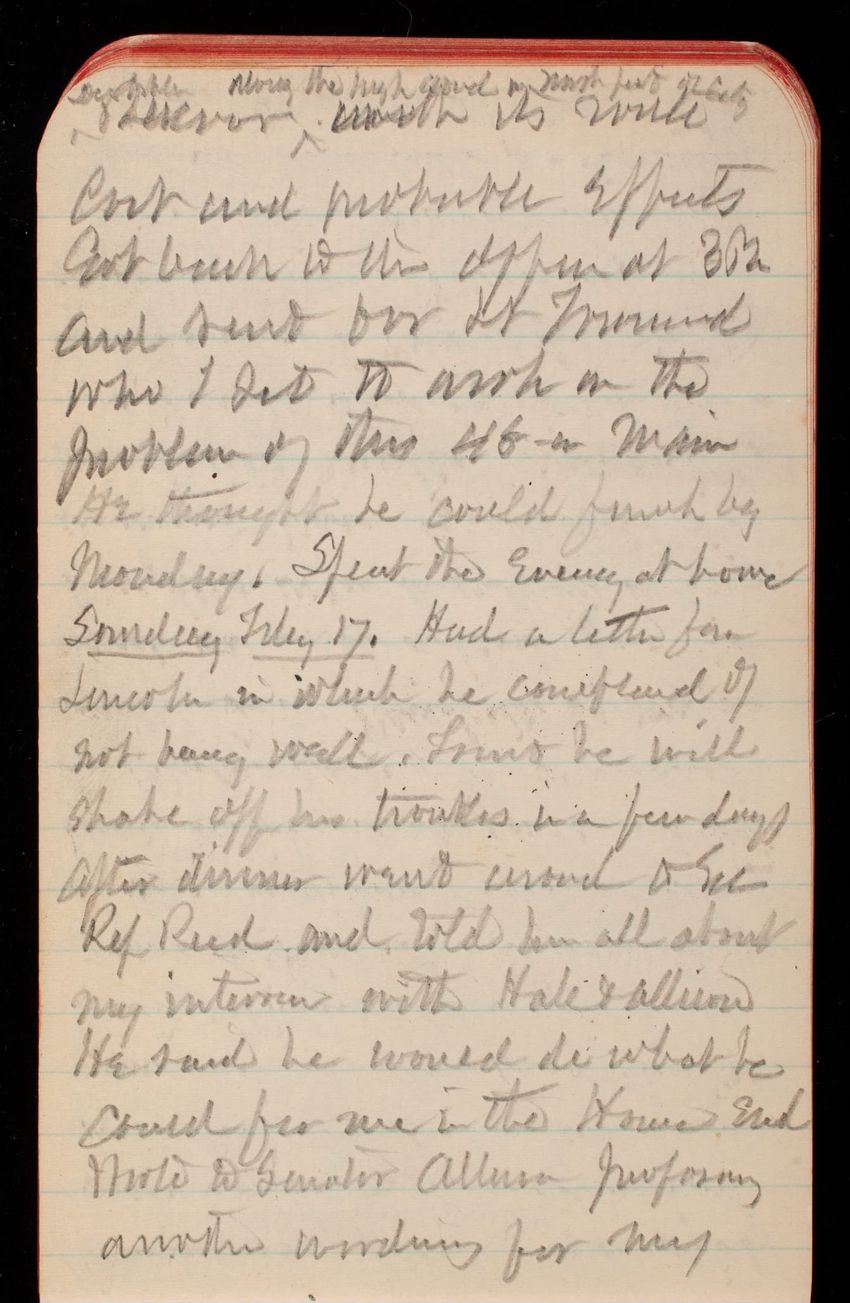 along the high ground in North part of City
Reservoir. with its
Cost and probable Effects
Got back to the office at 3 Pm
and sent for Lt Townsend
who I set to work on the
problem of this 48 in Main
He thought he could finish by
Monday. Spent the Evening at home
Sunday Feby 17. Had a letter from
Lincoln in which he complained of
not being well. he will
shake off his troubles in a few days
After dinner went around to See
Rep Reed and told him all about
my interview with Hale & Allison
He said he would do what he
could for me in the House End
Wrote to Senator Allison proposing
another wording for my